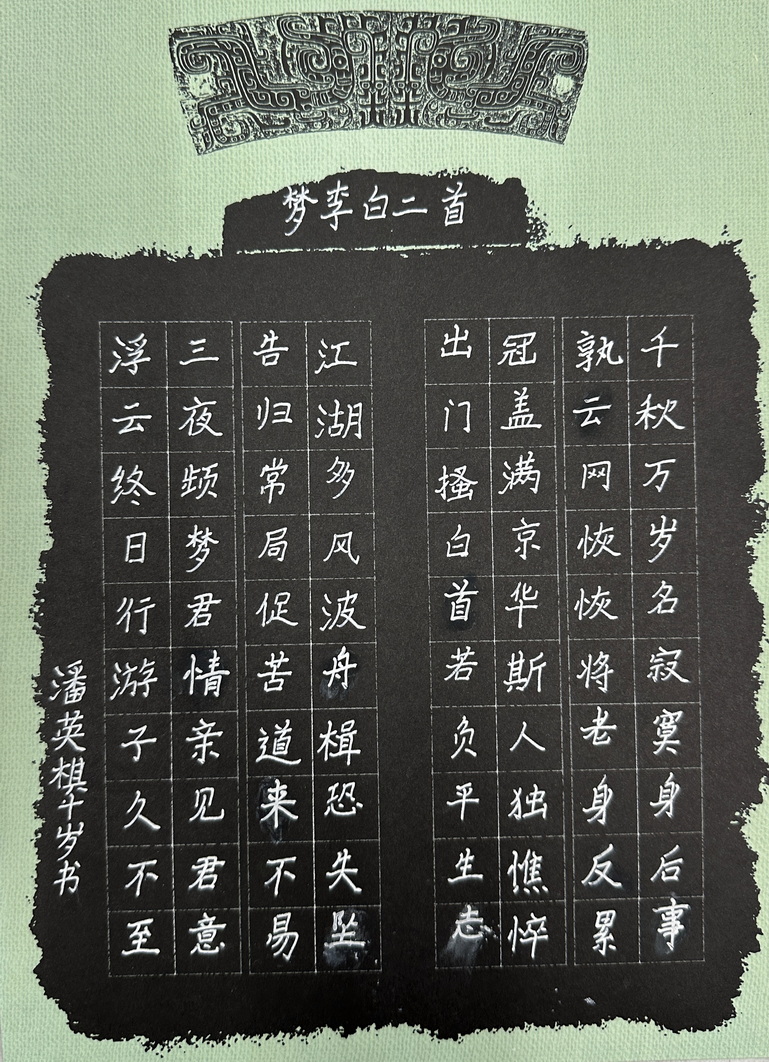 梦李白二首
浮云终日行游子久不至
三夜频梦君情亲见君意
告归常局促苦道来不易
江湖多风波舟楫恐失坠
出门搔白首若负平生志
冠盖满京华斯人独憔悴
孰云网恢恢将老身反累
千秋万岁名寂寞身后事
潘英棋十岁书